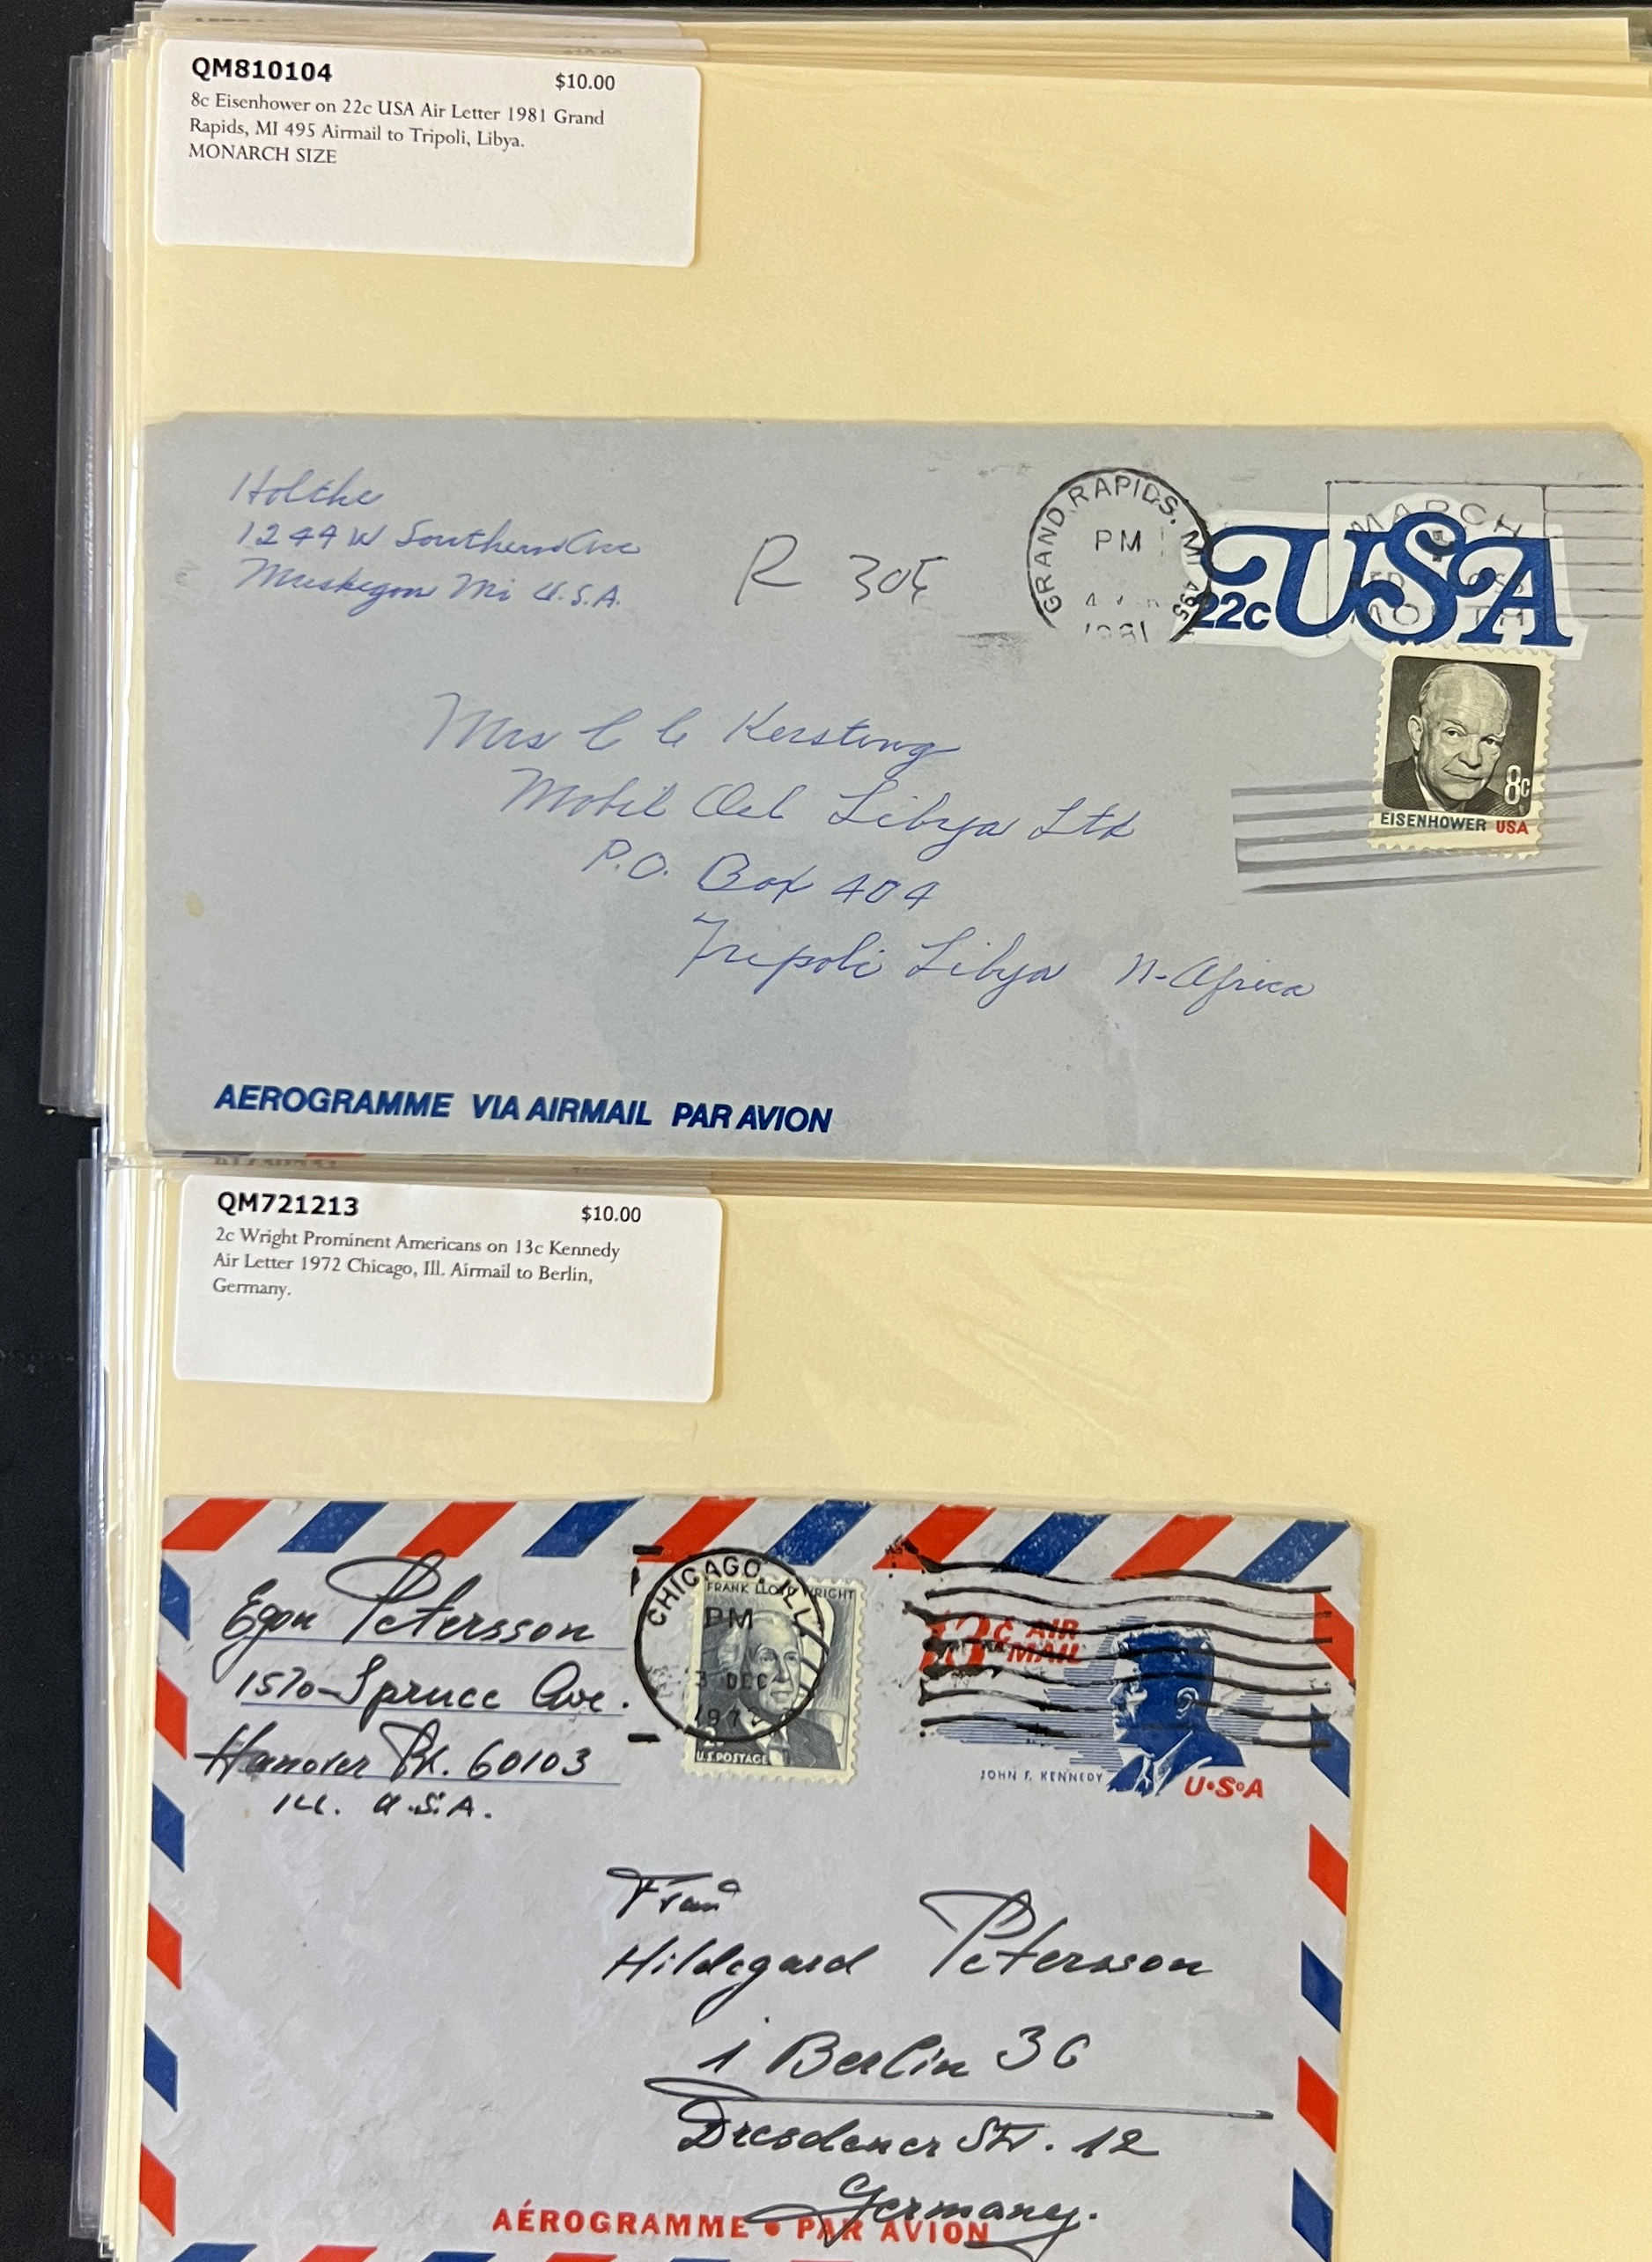 QM810104 $10.00
8c Eisenhower on 22c USA Air Letter 1981 Grand
Rapids, MI 495 Airmail to Tripoli, Libya.
MONARCH SIZE
Holthe
1244 W Southern Ave
Muskegon Mi U.S.A.
R 30¢
GRAND RAPIDS, MI 495
PM
1981
MARCH
MONTH
22c USA
8c
EISENHOWER USA
Mrs C C Kersting
Mobil Oil Libya Ltd
P.O. Box 404
Tripoli Libya N-Africa
AEROGRAMME VIA AIRMAIL PAR AVION
QM721213 $10.00
2c Wright Prominent Americans on 13c Kennedy
Air Letter 1972 Chicago, Ill. Airmail to Berlin,
Germany.
Egon Petersson
1570-Spruce Ave.
Hanover Pk. 60103
Ill. U.S.A.
CHICAGO, ILL
PM
3 DEC
197
FRANK LLOYD WRIGHT
U.S. POSTAGE
13¢ AIR
MAIL
JOHN F. KENNEDY
U·S·A
Frau
Hildegard Petersson
1 Berlin 36
Dresdener Str. 12
Germany.
AÉROGRAMME • PAR AVION